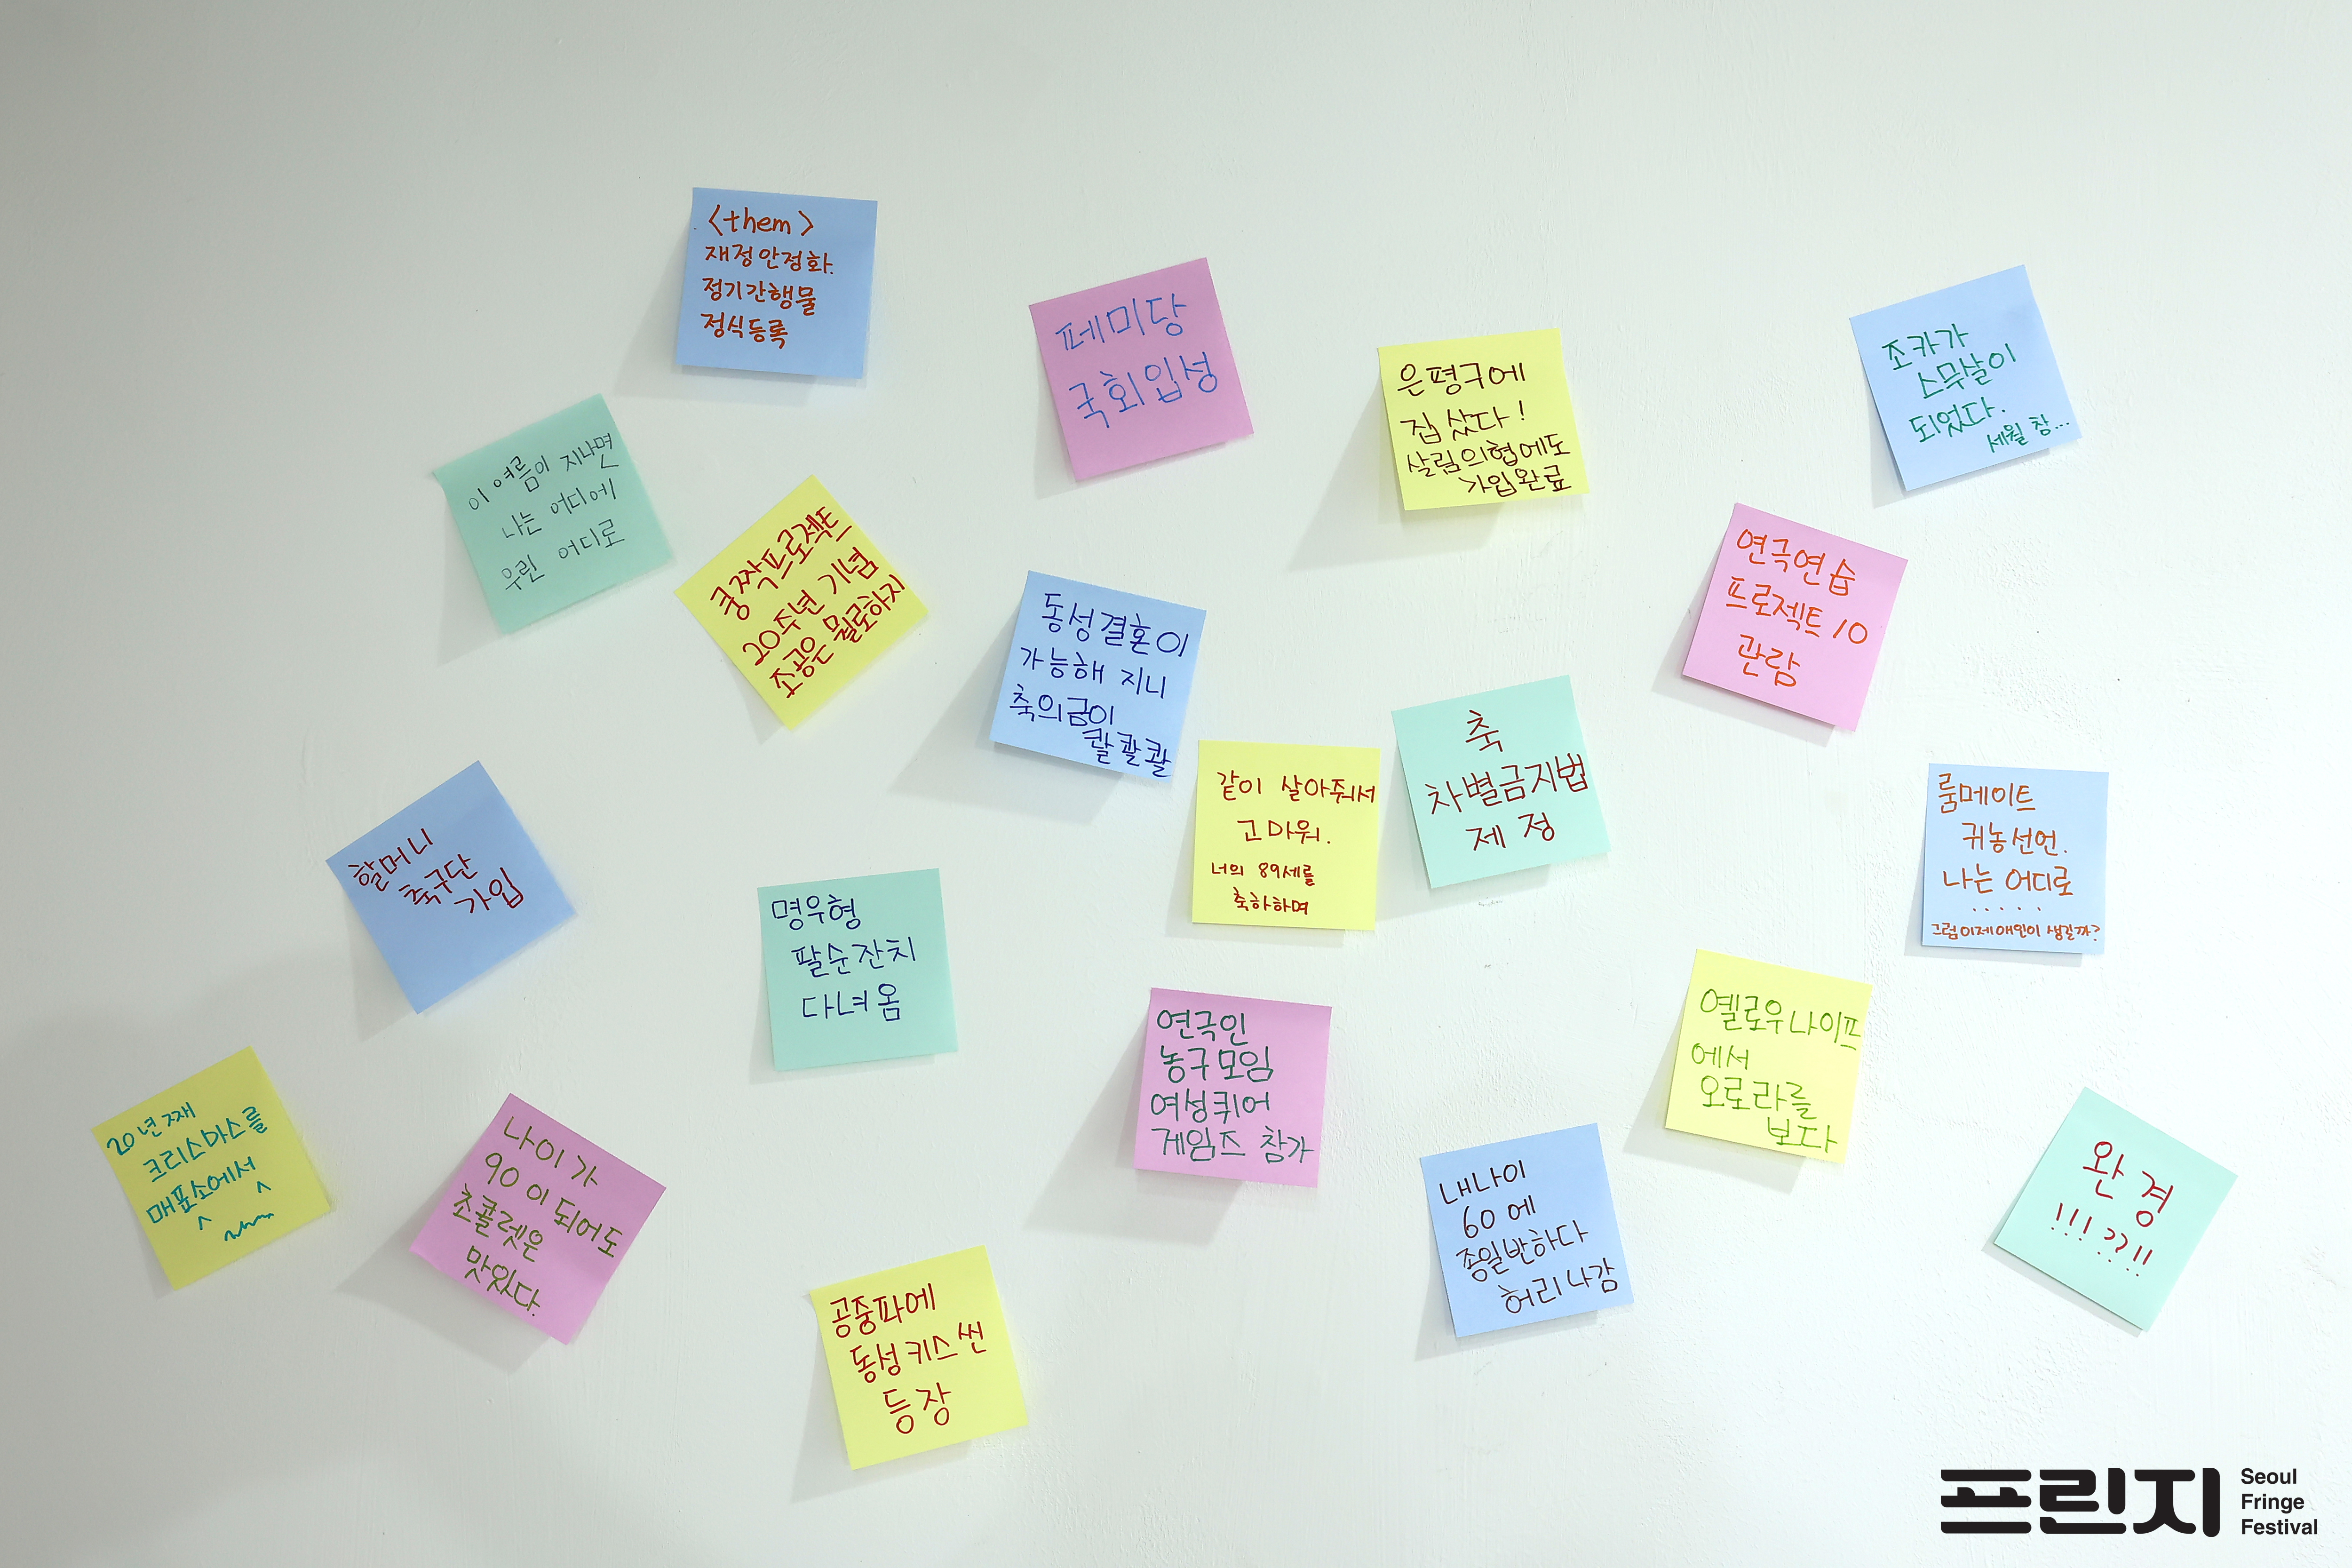 <them>
재정안정화.
정기간행물
정식등록
페미당
국회입성
은평구에
집 샀다!
살림의협에도
가입완료
조카가
스무살이
되었다.
세월 참...
이 여름이 지나면
나는 어디에
우린 어디로
쿵짝프로젝트
20주년 기념
조공은 뭘로하지
동성결혼이
가능해 지니
축의금이
콸콸콸
연극연습
프로젝트 10
관람
같이 살아줘서
고마워.
너의 89세를
축하하며
축
차별금지법
제정
룸메이트
귀농선언.
나는 어디로
.....
그럼이제애인이 생길까?
할머니
축구단
가입
명우형
팔순잔치
다녀옴
연극인
농구모임
여성퀴어
게임즈 참가
옐로우나이프
에서
오로라를
보다
20년째
크리스마스를
매표소에서
나이가
90이 되어도
초콜렛은
맛있다.
내나이
60에
종일반하다
허리나감
완경
!!!??!!
공중파에
동성키스씬
등장
프린지
Seoul
Fringe
Festival